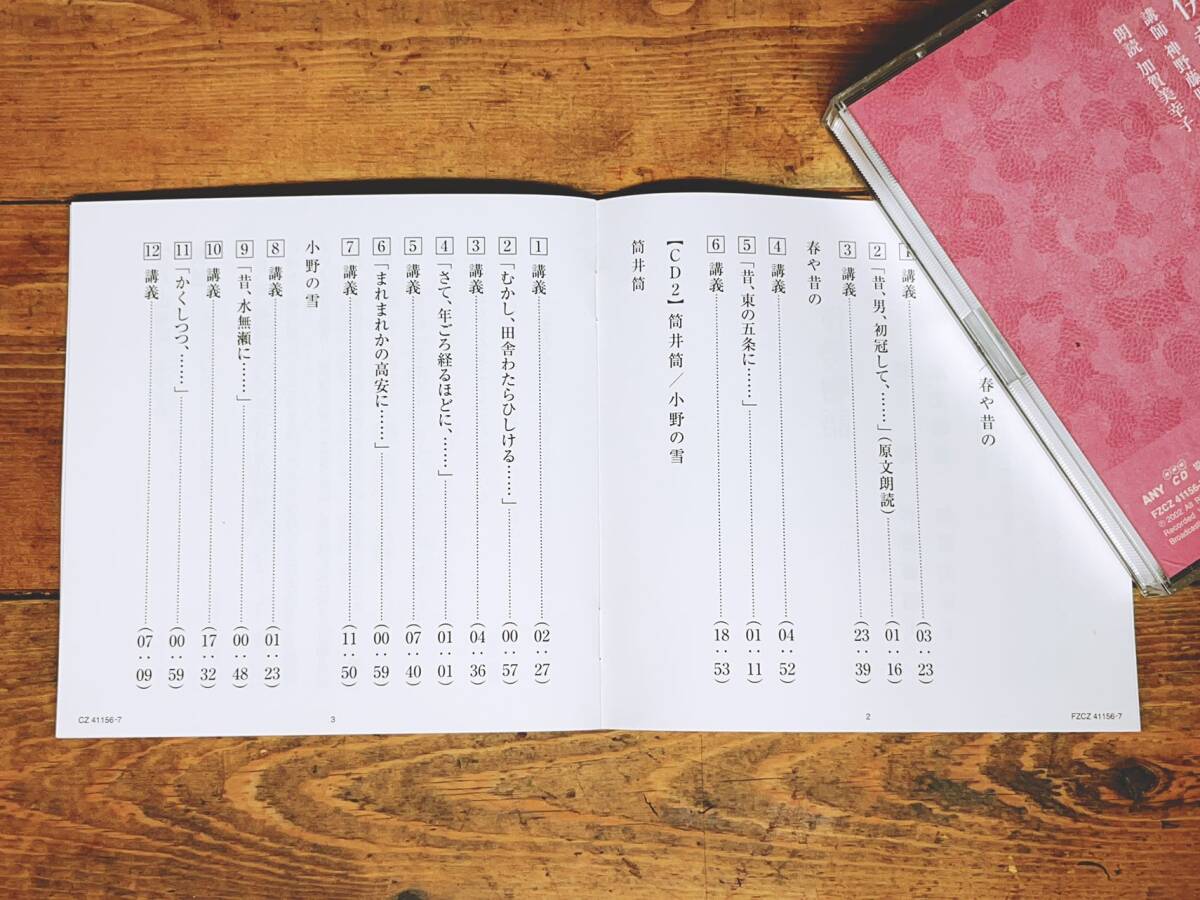 ／春や昔の
1 講義……(03：23)
2 「昔、男、初冠して、……」(原文朗読)……(01：16)
3 講義……(23：39)
春や昔の
4 講義……(04：52)
5 「昔、東の五条に……」……(01：11)
6 講義……(18：53)
【CD2】筒井筒／小野の雪
筒井筒
2
FZCZ 41156-7
1 講義……(02：27)
2 「むかし、田舎わたらひしける……」……(00：57)
3 講義……(04：36)
4 「さて、年ごろ経るほどに、……」……(01：01)
5 講義……(07：40)
6 「まれまれかの高安に……」……(00：59)
7 講義……(11：50)
小野の雪
8 講義……(01：23)
9 「昔、水無瀬に……」……(00：48)
10 講義……(17：32)
11 「かくしつつ、……」……(00：59)
12 講義……(07：09)
CZ 41156-7
3
講師 神野藤
朗読 加賀美幸子
ANY CD
FZCZ 41156-
℗2002 All
Recorded
Broadcast